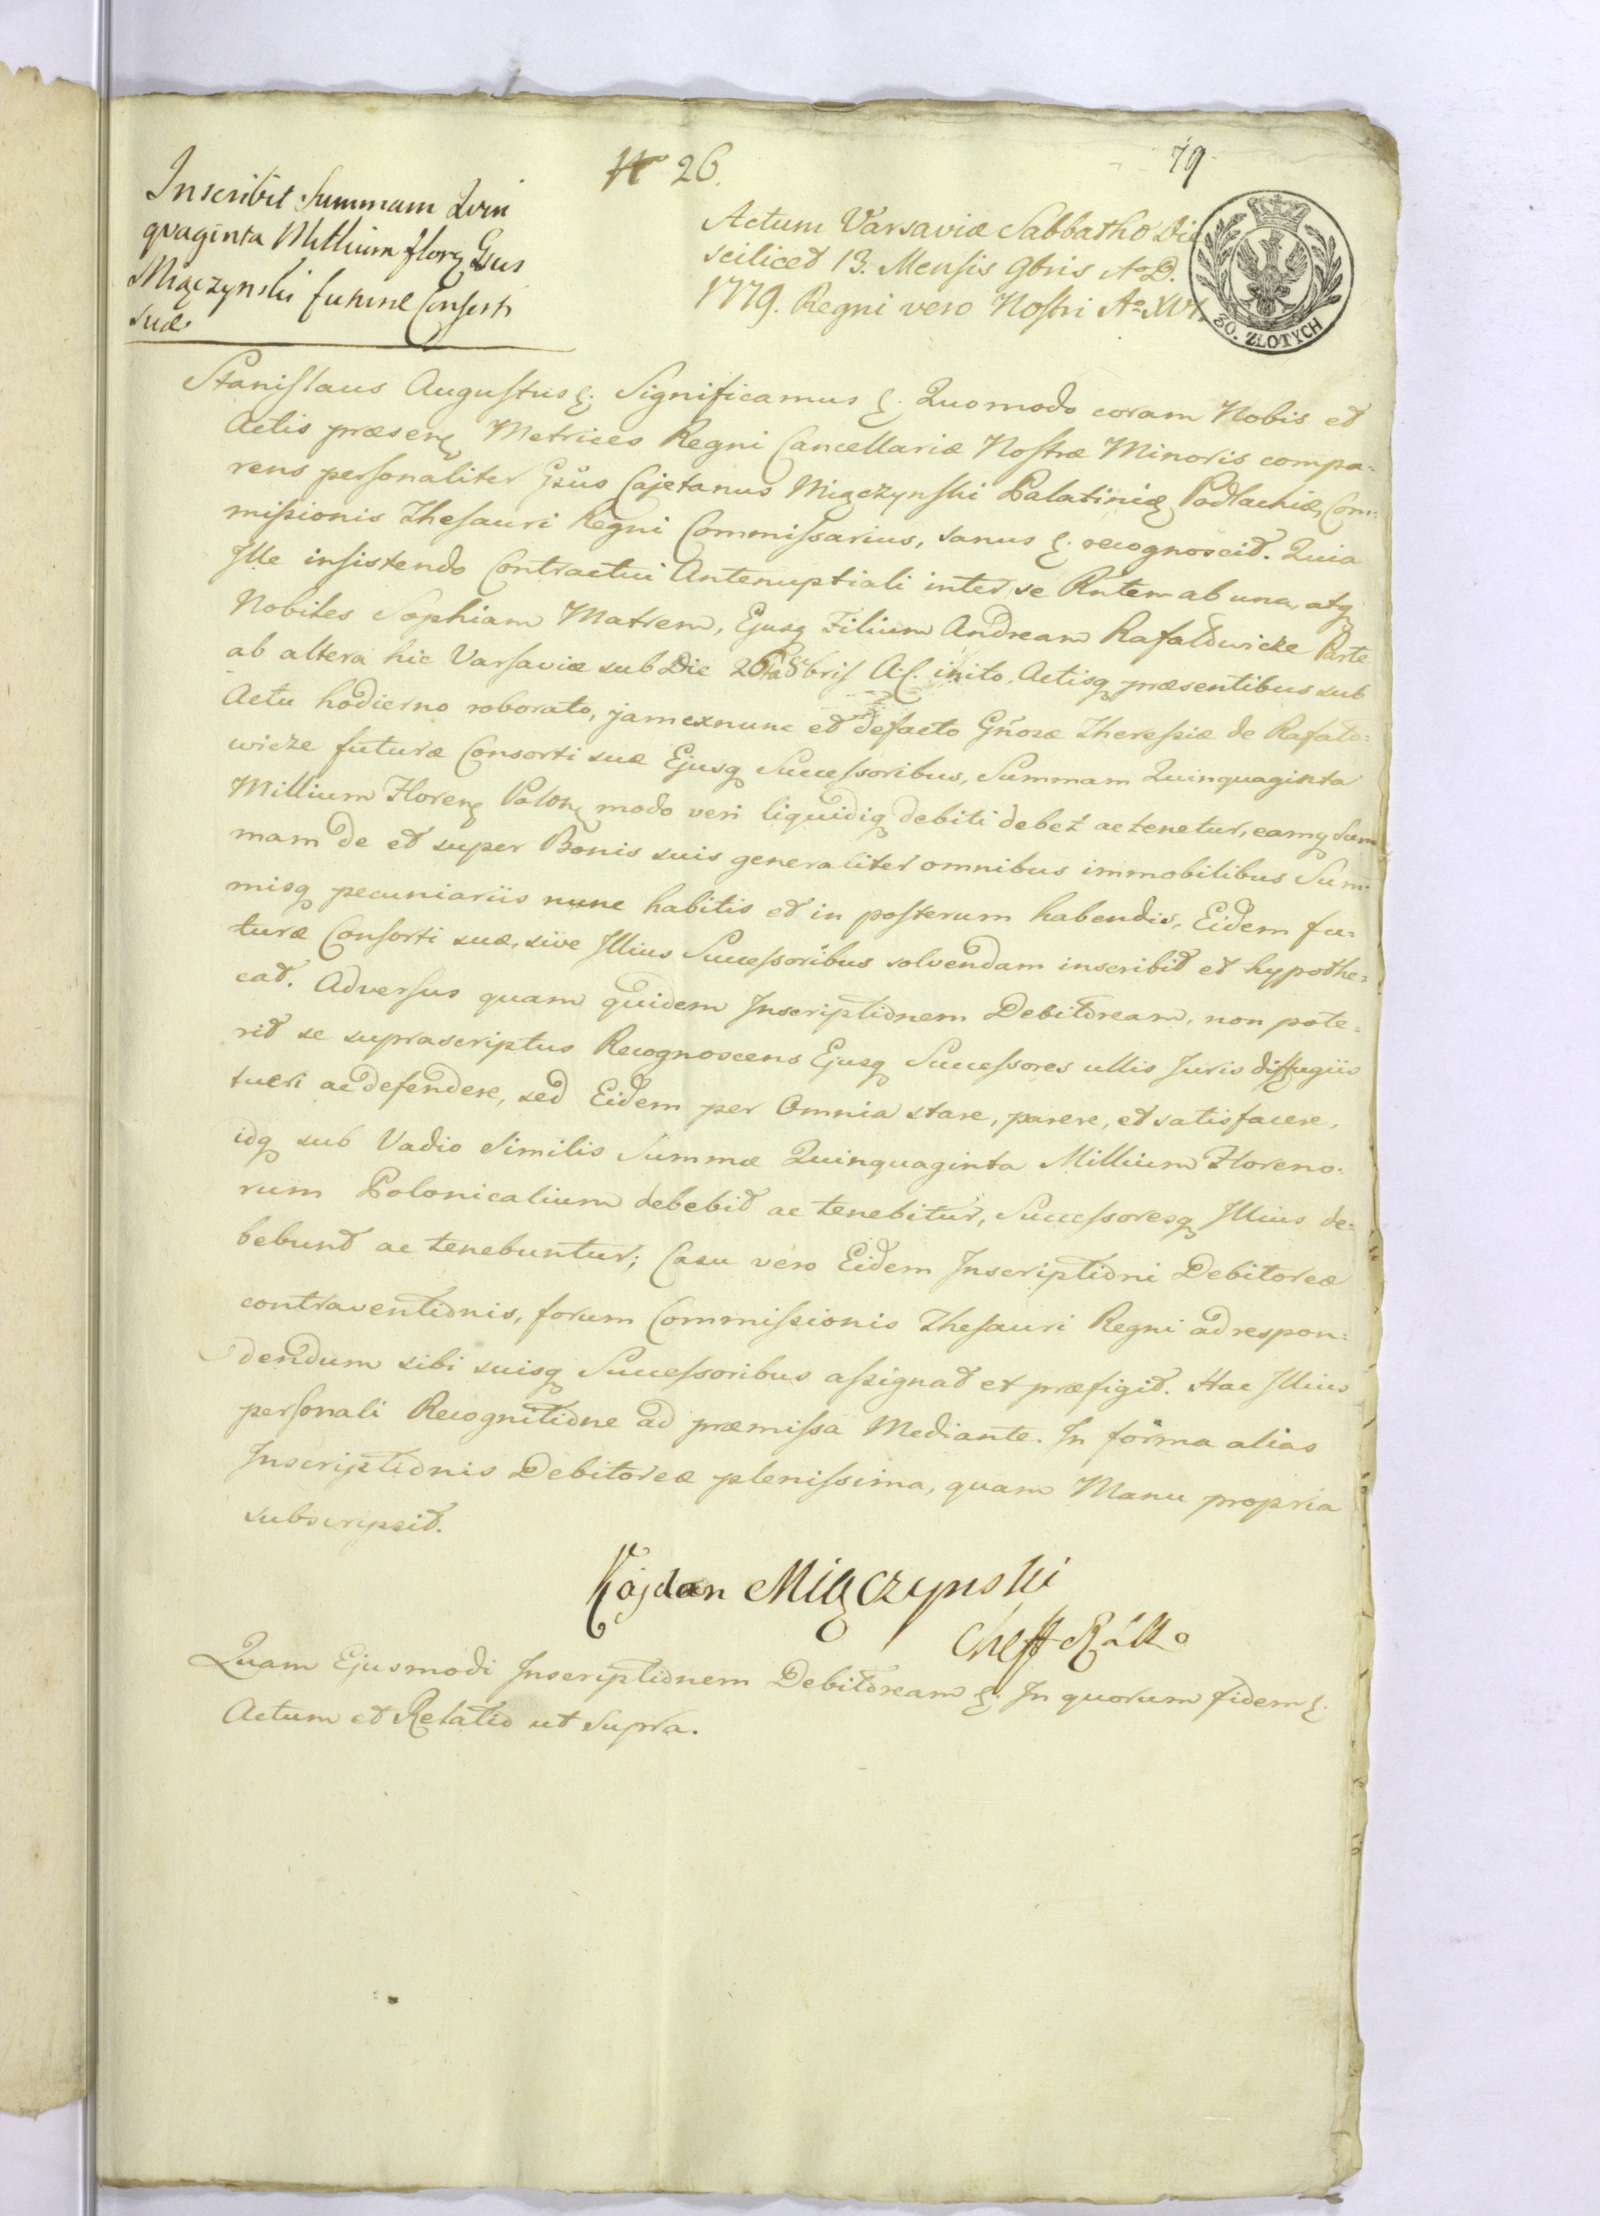 N 26.
79
Inscribit Summam Quin
quaginta Millium flor. Gsus
Miączynski futurae Consorti
suae.
Actum Varsaviæ Sabbatho Die
scilicet 13. Mensis 9bris Ao D.
1779. Regni vero Nostri Ao XVI.
30. ZŁOTYCH
Stanislaus Augustus &. Significamus &. Quomodo coram Nobis et
Actis præsen. Metrices Regni Cancellariæ Nostræ Minoris compa=
rens personaliter Gsus Cajetanus Miączynski Palatini. Podlachiæ, Com=
missionis Thesauri Regni Commissarius, sanus &. recognoscit. Quia
Ille insistendo Contractui Antenuptiali inter se Rntem ab una, atq
Nobiles Sophiam Matrem, Ejusq Filium Andream Rafałowicze Parte
ab altera hic Varsaviæ sub Die 26ta 8bris A. C. inito, Actisq præsentibus sub
Actu hodierno roborato, jam ex nunc et defacto Gñosæ Theresiæ de Rafało=
wicze futuræ Consorti suæ Ejusq Successoribus, Summam Quinquaginta
Millium Floren. Polon. modo veri liquidiq debiti debet ac tenetur, eamq Sum
mam de et super Bonis suis generaliter omnibus immobilibus Sum=
misq pecuniariis nunc habitis et in posterum habendis, Eidem fu=
turæ Consorti suæ, sive Illius Successoribus solvendam inscribit et hypothe=
cat. Adversus quam quidem Inscriptionem Debitoream, non pote=
rit se suprascriptus Recognoscens Ejusq Successores ullis Juris diffugiis
tueri ac defendere, sed Eidem per Omnia stare, parere, et satisfacere,
idq sub Vadio Similis Summæ Quinquaginta Millium Floreno=
rum Polonicalium debebit ac tenebitur, Successoresq Illius de=
bebunt ac tenebuntur; Casu vero Eidem Inscriptioni Debitoreæ
contraventionis, forum Commissionis Thesauri Regni ad respon=
dendum sibi suisq Successoribus assignat et præfigit. Hac Illius
personali Recognitione ad præmissa Mediante. In forma alias
Inscriptionis Debitoreæ plenissima, quam Manu propria
subscripsit.
Kajetan Miączynski
Quam Ejusmodi Inscriptionem Debitoream &. In quorum fidem &.
Actum et Relatio ut Supra.